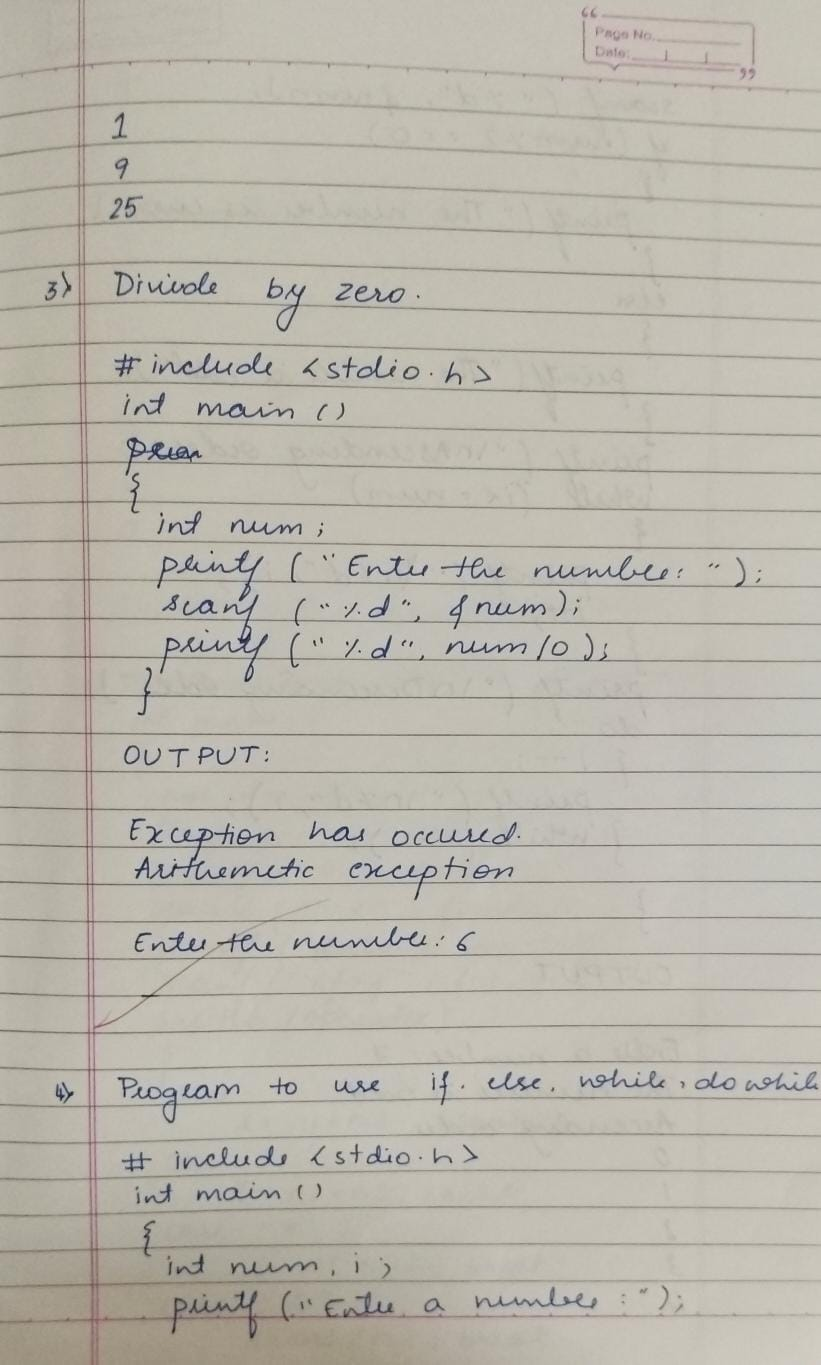 Page No.
Date:
1
9
25
3) Divide by zero.
# include <stdio.h>
int main ()
{
int num ;
printf ( " Enter the number: " );
scanf ( " %d", &num );
printf ( " %d", num/0 );
}
OUTPUT:
Exception has occured.
Arithemetic exception
Enter the number: 6
4) Program to use if, else, while, do while
# include <stdio.h>
int main ()
{
int num, i ;
printf ( " Enter a number : " );